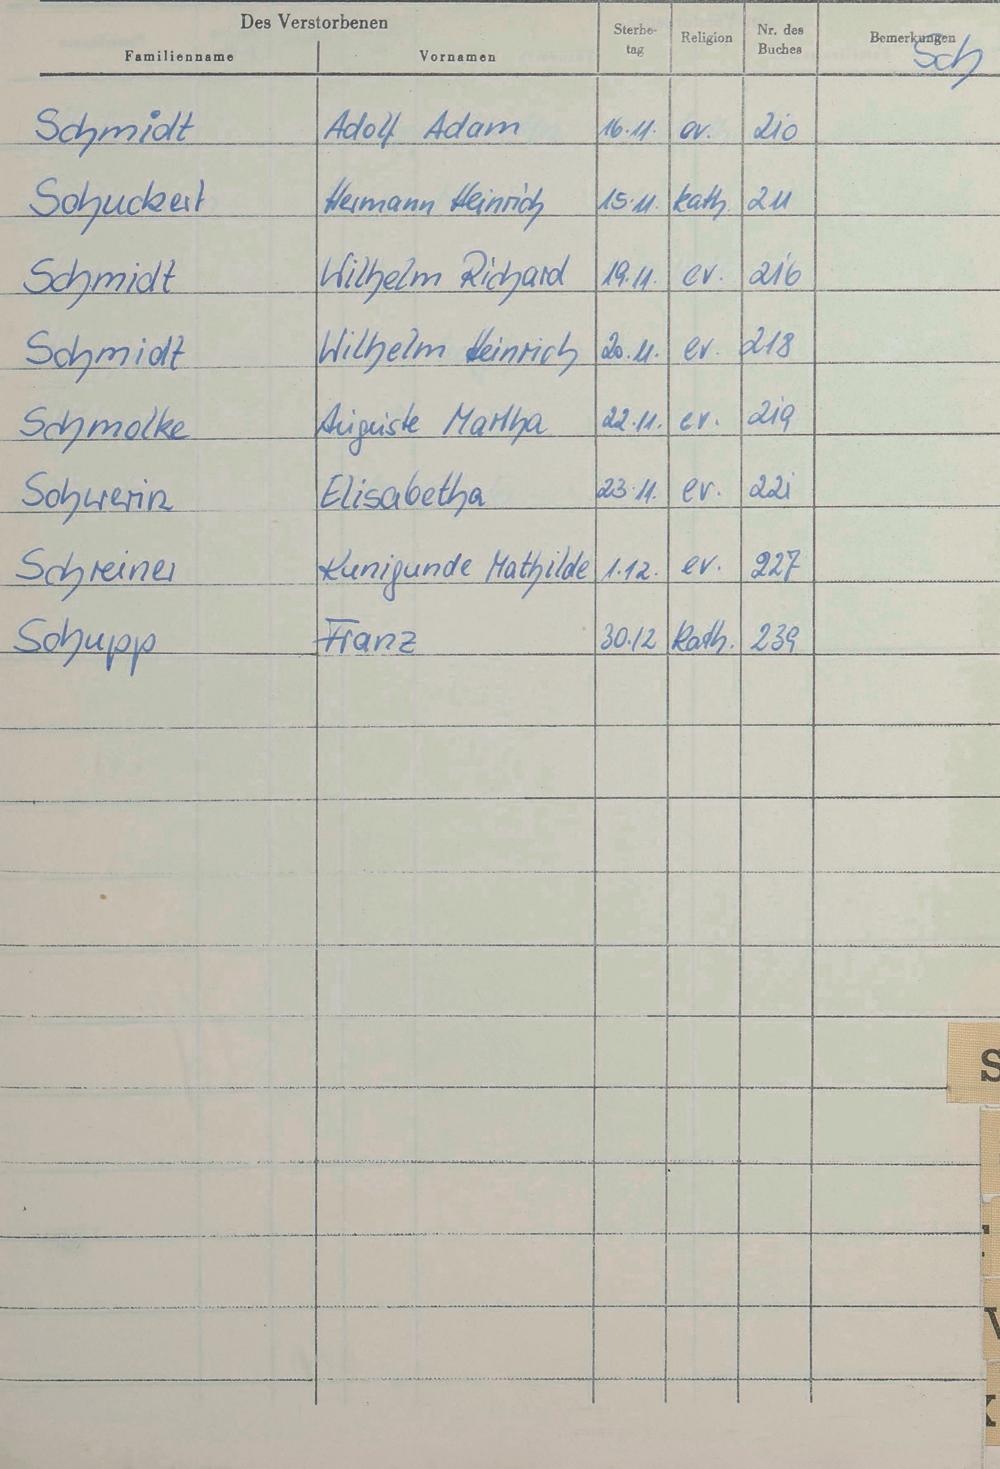 Des Verstorbenen
Familienname Vornamen Sterbe-
tag Religion Nr. des
Buches Bemerkungen
Sch
Schmidt Adolf Adam 16.11. ev. 210
Schuckert Hermann Heinrich 15.11. kath. 211
Schmidt Wilhelm Richard 19.11. ev. 216
Schmidt Wilhelm Heinrich 20.11. ev. 218
Schmolke Auguste Martha 22.11. ev. 219
Schwerin Elisabetha 23.11. ev. 221
Schreiner Kunigunde Mathilde 1.12. ev. 227
Schupp Franz 30.12 Kath. 239
S
V